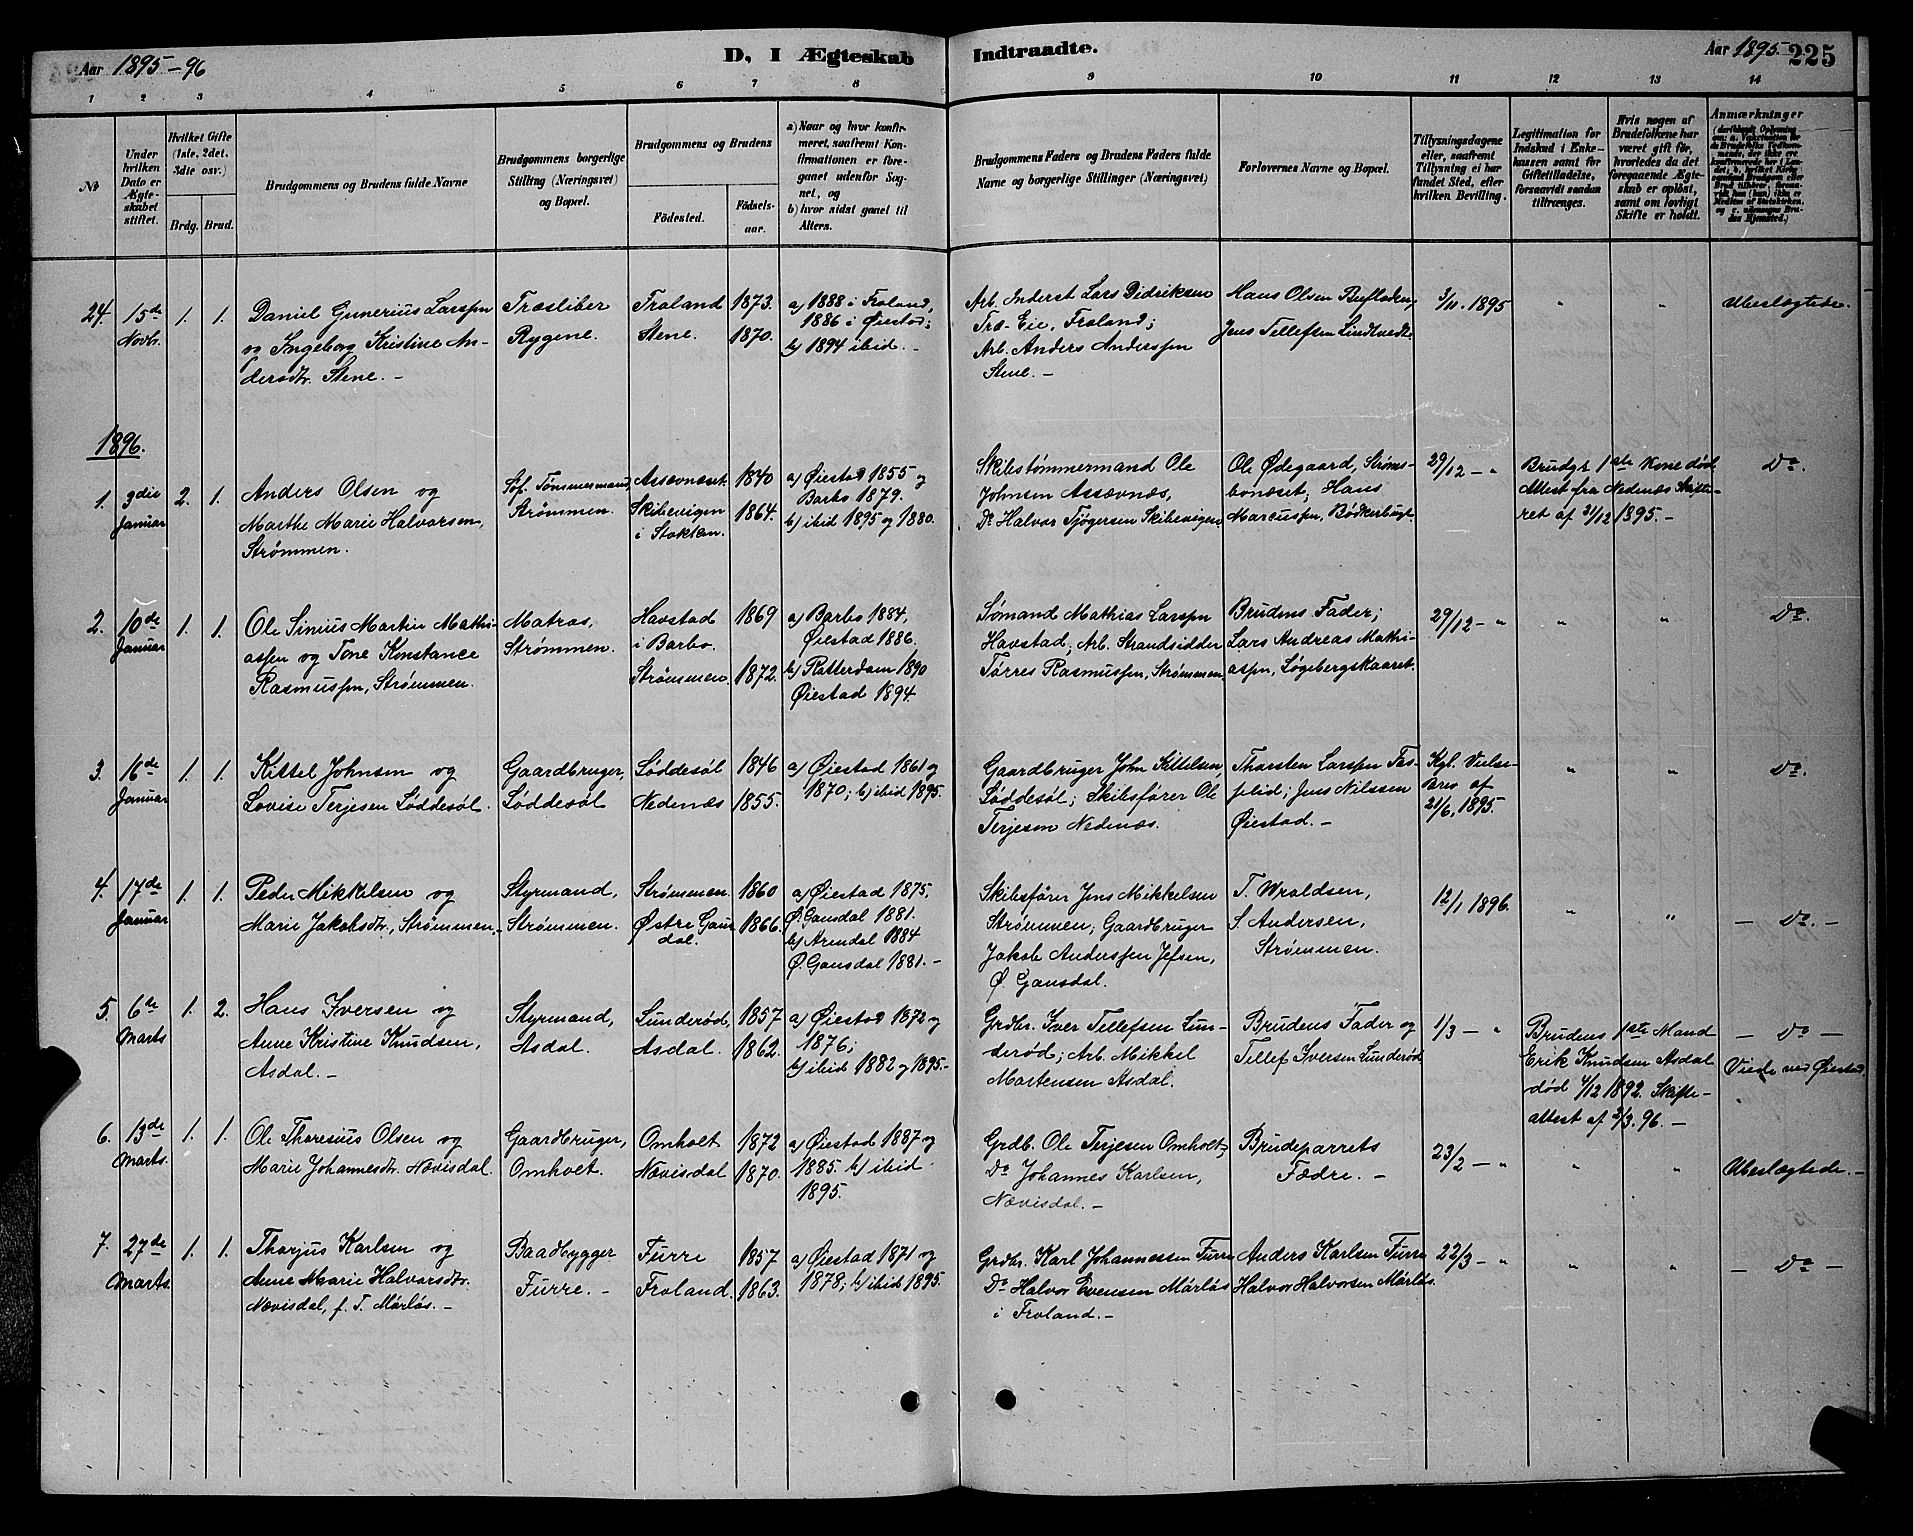 Aar 1895-96
D, I Ægteskab Indtraadte.
Aar 1895- 225
1 2 3 4 5 6 7 8 9 10 11 12 13 14
No
Under hvilken Dato er Ægteskabet stiftet.
Hvilket Gifte (1ste, 2det, 3die osv.)
Brdg. Brud.
Brudgommens og Brudens fulde Navne
Brudgommens borgerlige Stilling (Næringsvei) og Bopæl.
Brudgommens og Brudens
Födested. Födsels-aar.
a) Naar og hvor konfirmeret, saafremt Konfirmationen er foregaaet udenfor Sognet, og
b) hvor sidst gaaet til Alters.
Brudgommens Faders og Brudens Faders fulde Navne og borgerlige Stillinger (Næringsvei)
Forlovernes Navne og Bopæl.
Tillysningsdagene eller, saafremt Tillysning ei har fundet Sted, efter hvilken Bevilling.
Legitimation for Indskud i Enkekassen samt for Giftetilladelse, forsaavidt saadan tiltrænges.
Hvis nogen af Brudefolkene har været gift før, hvorledes da det foregaaende Ægteskab er opløst, samt om lovligt Skifte er holdt.
Anmærkninger
24. 15de Novbr. 1. 1.
Daniel Gunerius Larssen
og Ingeborg Kristine An-
dersdtr. Stene. -
Træsliber
Rygene.
Froland 1873.
Stene. 1870.
a) 1888 i Froland,
1886 i Øiestad;
b) 1894 ibid. -
Arb. Inderst Lars Didriksen
Træ-Eie, Froland;
Arb. Anders Anderssen
Stene. -
Hans Olsen Refladen,
Jens Tellefsen Lindtvedt.
3/11. 1895
"
"
Ubeslægtede.
1896.
1. 3die Januar 2. 1.
Anders Olsen og
Marthe Marie Halvorsen,
Strømmen.
Søf. Tømmermand,
Strømmen.
Assævnæset 1840
Skibevigen 1864.
i Stokken.
a) Øiestad 1855 og
Barbo 1879.
b) ibid 1895 og 1880.
Skibstømmermand Ole
Johnsen Assævnæs,
Do Halvor Tjøgersen Skibevigen
Ole Ødegaard, Strøms-
bonæset; Hans
Marcussen, Bødkerbugt.
29/12 - "
Brudgs 1ste Kone død
Attest fra Nedenæs Skifte-
ret af 31/12 1895. -
Do.
2. 10de Januar 1. 1.
Ole Sinius Martin Mathi-
assen og Tone Konstance
Rasmussen, Strømmen.
Matros,
Strømmen.
Havstad 1869
i Barbo.
Strømmen. 1872.
a) Barbo 1884,
Øiestad 1886.
b) Rotterdam 1890
Øiestad 1894.
Sømand Mathias Larssen
Havstad; Arb. Strandsidder
Tørres Rasmussen, Strømmen.
Brudens Fader;
Lars Andreas Mathi-
assen, Løgebergskaaret.
29/12 - "
"
"
Do.
3. 16de Januar 1. 1.
Kittel Johnsen og
Lovise Terjesen Løddesøl.
Gaardbruger,
Løddesøl
Løddesøl 1846
Nedenæs 1855.
a) Øiestad 1861 og
1870; b) ibid 1895.
Gaardbruger John Kittelsen,
Løddesøl; Skibsfører Ole
Terjesen Nedenæs.
Thorsten Larssen Fos-
selid; Jens Nilssen
Øiestad. -
Kgl. Vielse-
Brev af
21/6, 1895.
"
"
Do.
4. 17de Januar 1. 1.
Peder Mikkelsen og
Marie Jakobsdtr., Strømmen.
Styrmand,
Strømmen.
Strømmen 1860
Østre Gaus- 1866.
dal.
a) Øiestad 1875.
Ø. Gausdal 1881.
b) Arendal 1884
Ø. Gausdal 1881. -
Skibsfører Jens Mikkelsen
Strømmen; Gaardbruger
Jakob Anderssen Jefsen,
Ø. Gausdal.
T. Wroldsen,
S. Andersen,
Strømmen.
12/1 1896.
"
"
- Do. -
5. 6de Marts 1. 2.
Hans Iversen og
Anne Kristine Knudsen,
Asdal. -
Styrmand,
Asdal.
Lunderød, 1857
Asdal. 1862.
a) Øiestad 1872 og
1876;
b) ibid 1882 og 1895. -
Grdbr. Iver Tellefsen Lun-
derød; Arb. Mikkel
Mortensen Asdal.
Brudens Fader og
Tellef Iversen Lunderød
1/3 - "
Brudens 1ste Mand
Erik Knudsen Asdal
død 4/12 1892. Skifte-
attest af 2/3. 96. -
- Do -
Viede ved Øiestad.
6. 13de Marts. 1. 1.
Ole Thoresius Olsen og
Marie Johannesdtr. Nævisdal.
Gaardbruger,
Omholt.
Omholt 1872
Nævisdal 1870.
a) Øiestad 1887 og
1885. b) ibid
1895.
Grdb. Ole Terjesen Omholt;
Do Johannes Karlsen,
Nævisdal. -
Brudeparrets
Fædre. -
23/2 - "
"
"
Ubeslægtede. -
7. 27de Marts. 1. 1.
Thorjus Karlsen og
Anne Marie Halvorsdtr.
Nævisdal, f. T. Mørløs. -
Baadbygger
Furre. -
Furre 1857
Froland. 1863.
a) Øiestad 1871 og
1878; b) ibid 1895.
Grdbr. Karl Johannessen Furre
Do Halvor Evensen Mørløs
i Froland. -
Anders Karlsen Furre
Halvor Halvorsen Mørløs.
22/3 - "
"
"
- Do -